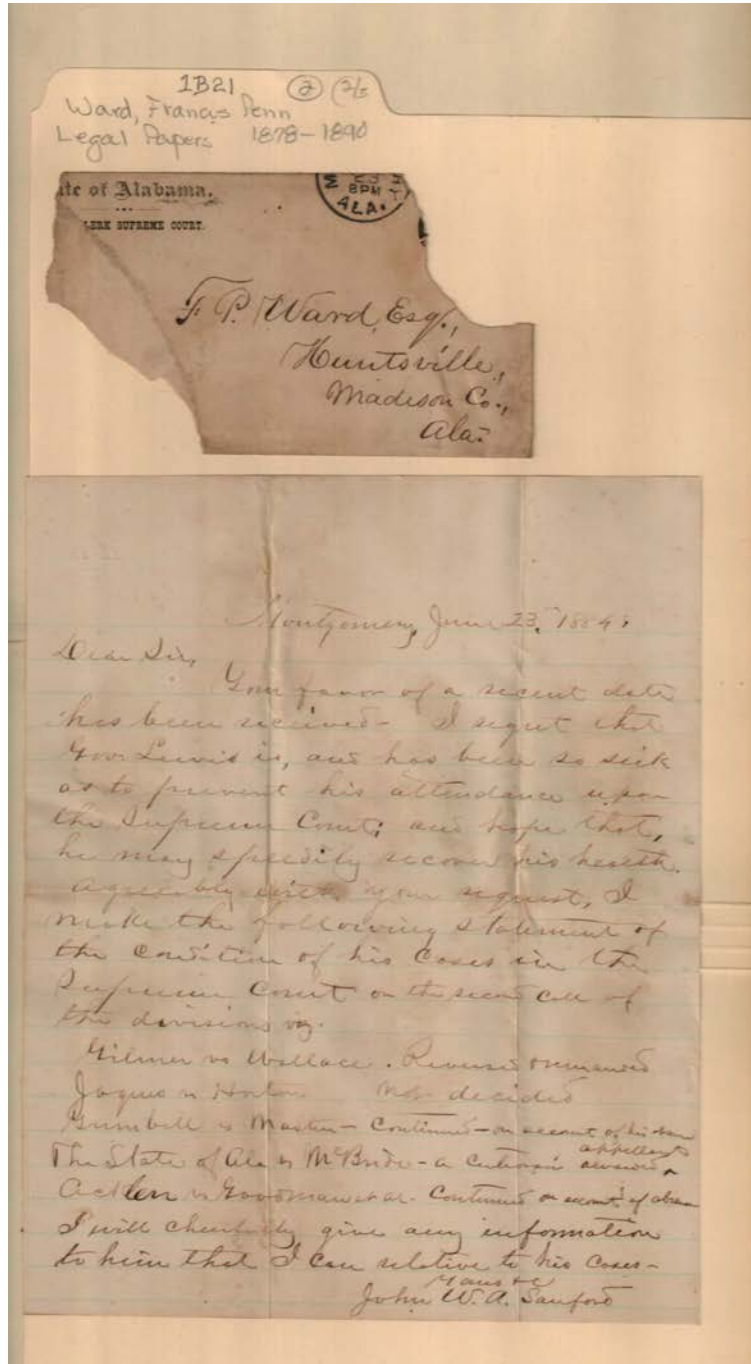 1B21 ② (2/5
Ward, Francis Penn
Legal Papers 1878-1890
ate of Alabama.
LERK SUPREME COURT.
M 23
8PM
ALA.
F. P. Ward, Esq.,
Huntsville,
Madison Co.,
Ala.
Montgomery, June 23, 1884.
Dear Sir,
Your favor of a recent date
has been received- I regret that
Gov. Lewis is, and has been so sick
as to prevent his attendance upon
the Supreme Court; and hope that,
he may speedily recover his health.
Agreeably with your request, I
make the following statement of
the condition of his cases in the
Supreme Court on the second call of
the divisions viz.
Gilmer vs Wallace. Reversed & remanded
Jaques vs Horton Not decided
vs - Continued - on account of his
The State of Ala vs McBride - a
appellants
Acklen vs Goodman et al. Continued on account of
I will cheerfully give any information
to him that I can relative to his cases-
Yours &c
John W. A. Sanford